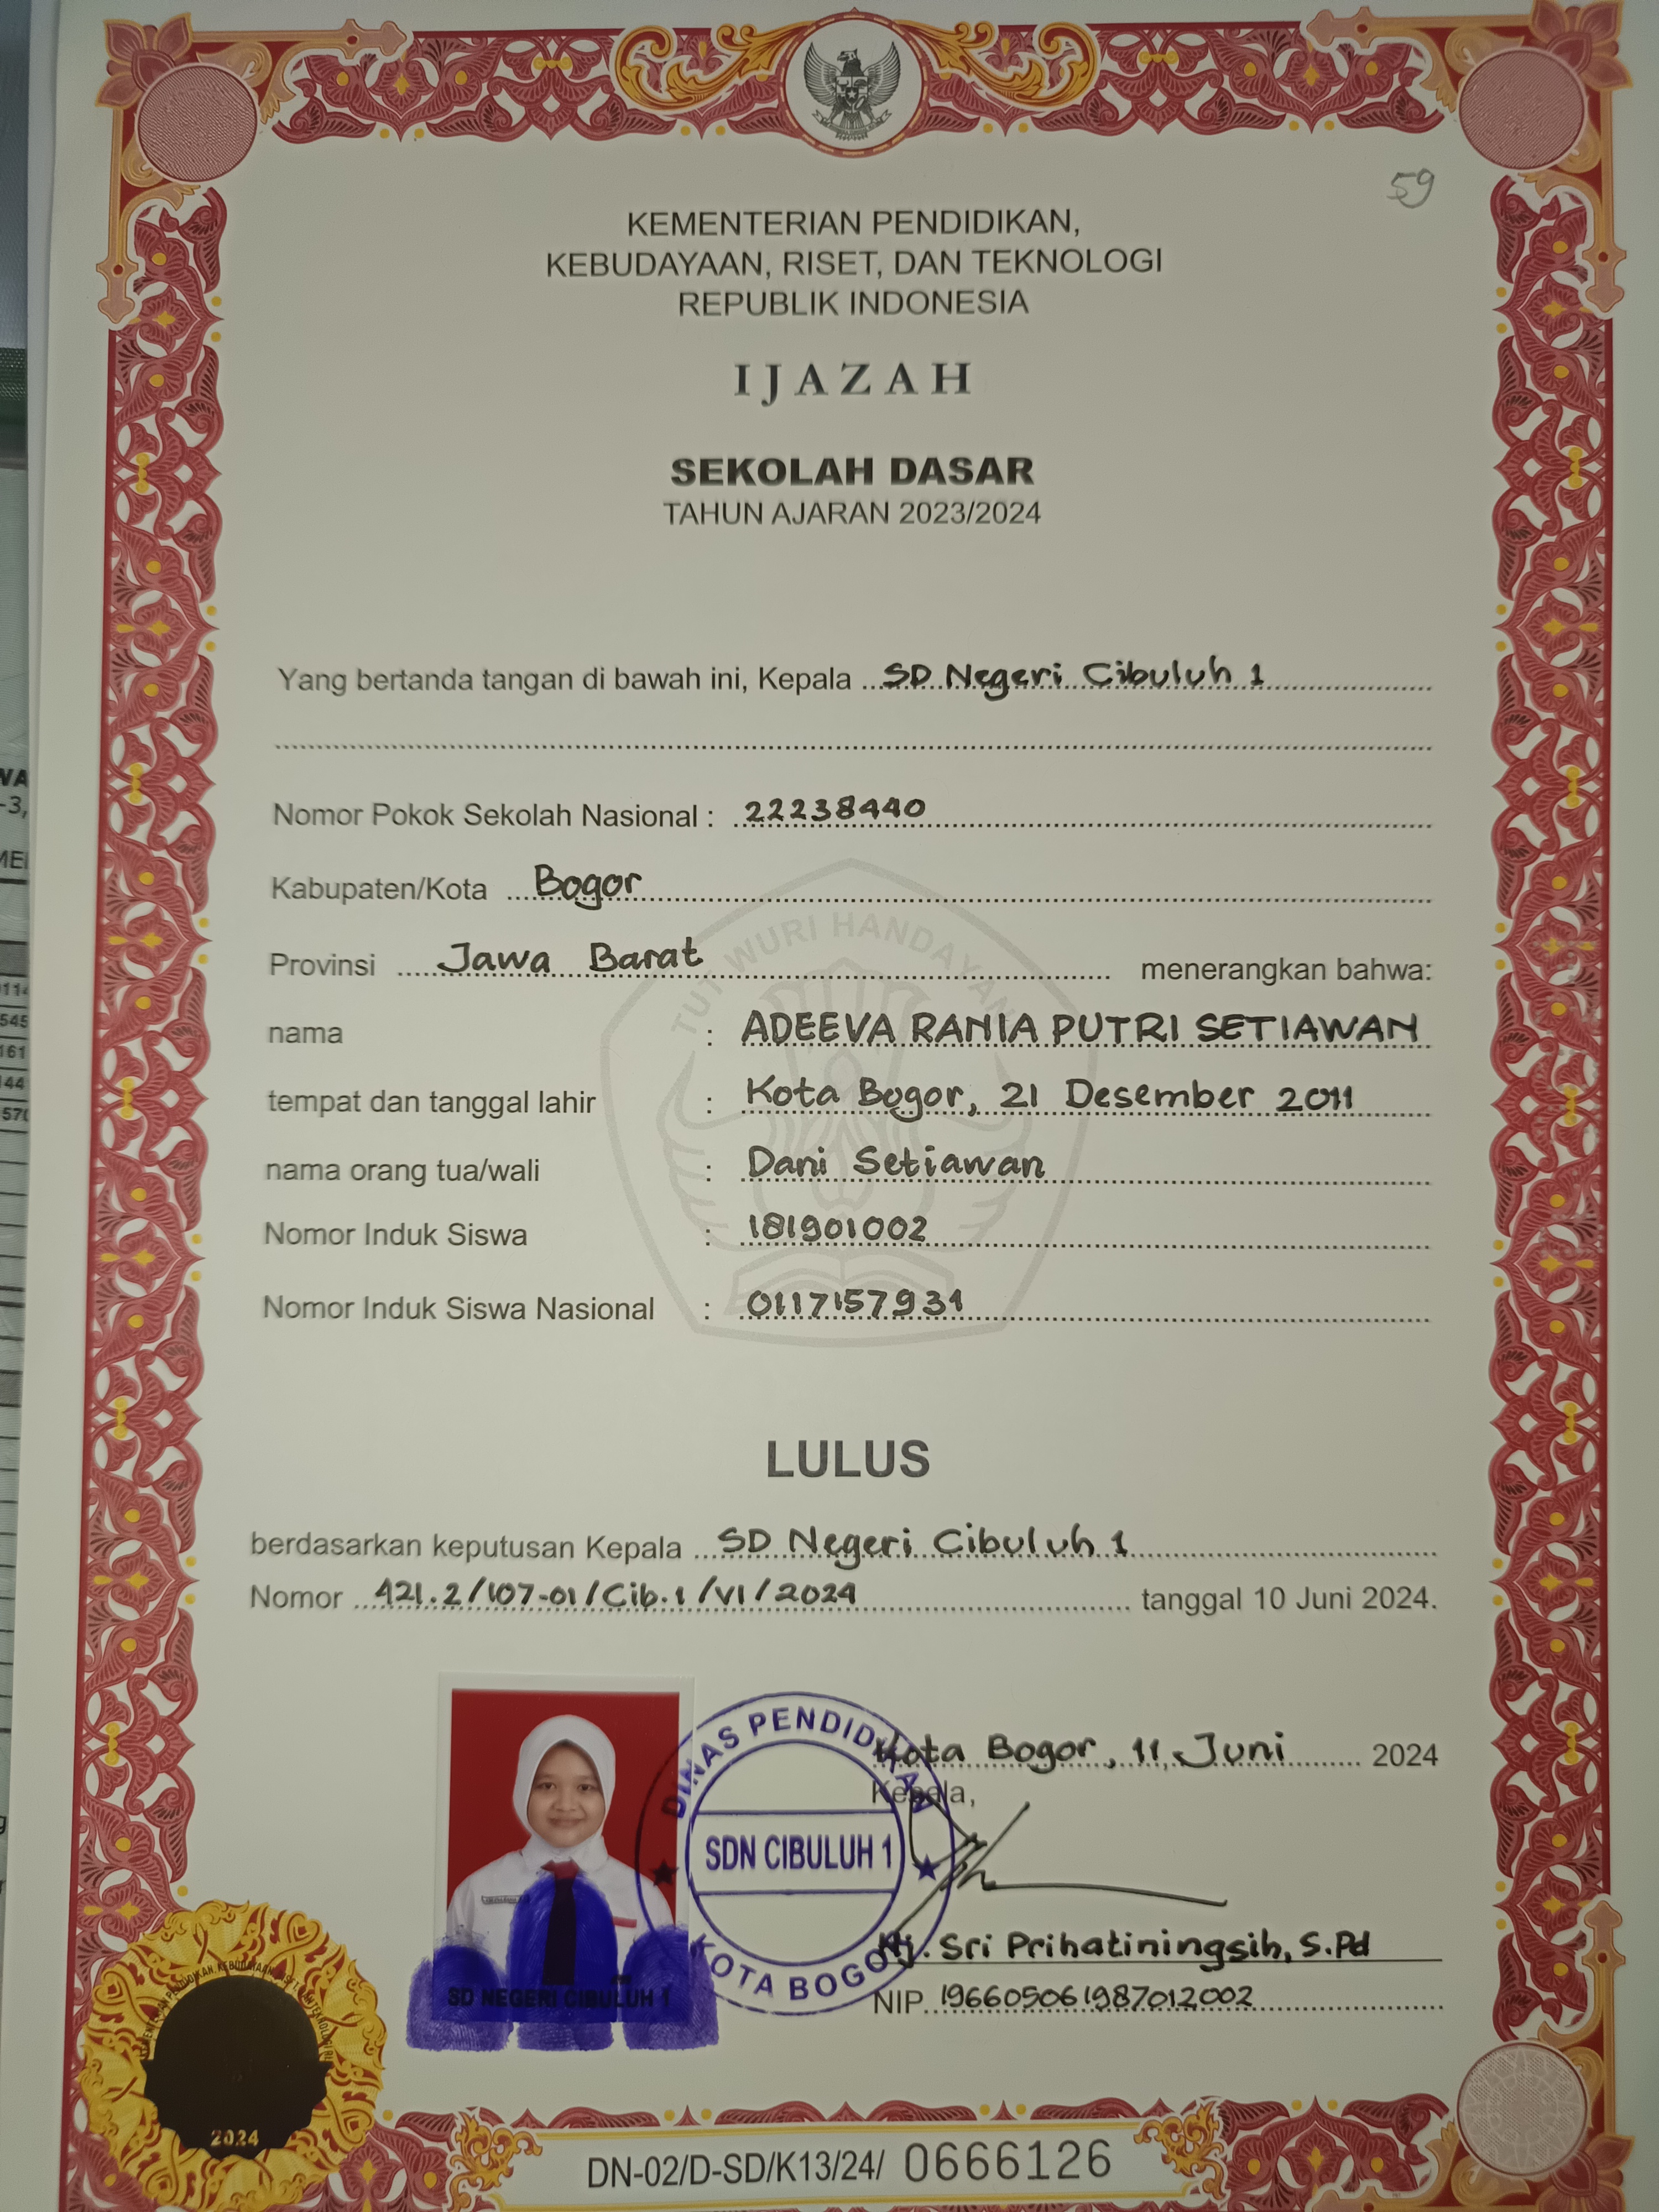 59
KEMENTERIAN PENDIDIKAN,
KEBUDAYAAN, RISET, DAN TEKNOLOGI
REPUBLIK INDONESIA
IJAZAH
SEKOLAH DASAR
TAHUN AJARAN 2023/2024
Yang bertanda tangan di bawah ini, Kepala SD Negeri Cibuluh 1
Nomor Pokok Sekolah Nasional : 22238440
Kabupaten/Kota Bogor
TUT WURI HANDAYANI
Provinsi Jawa Barat menerangkan bahwa:
nama : ADEEVA RANIA PUTRI SETIAWAN
tempat dan tanggal lahir : Kota Bogor, 21 Desember 2011
nama orang tua/wali : Dani Setiawan
Nomor Induk Siswa : 181901002
Nomor Induk Siswa Nasional : 0117157931
LULUS
berdasarkan keputusan Kepala SD Negeri Cibuluh 1
Nomor 421.2/107-01/Cib.1/VI/2024 tanggal 10 Juni 2024.
Kota Bogor, 11 Juni 2024
Kepala,
DINAS PENDIDIKAN
SDN CIBULUH 1
KOTA BOGOR
Hj. Sri Prihatiningsih, S.Pd
NIP. 196605061987012002
SD NEGERI CIBULUH 1
2024
DN-02/D-SD/K13/24/ 0666126